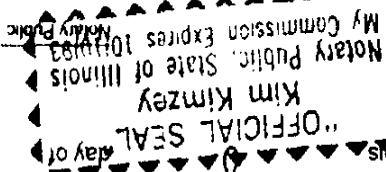 is
day of
"OFFICIAL SEAL
Kim Kimzey
Notary Public, State of Illinois
My Commission Expires 10/1/93
Notary Public